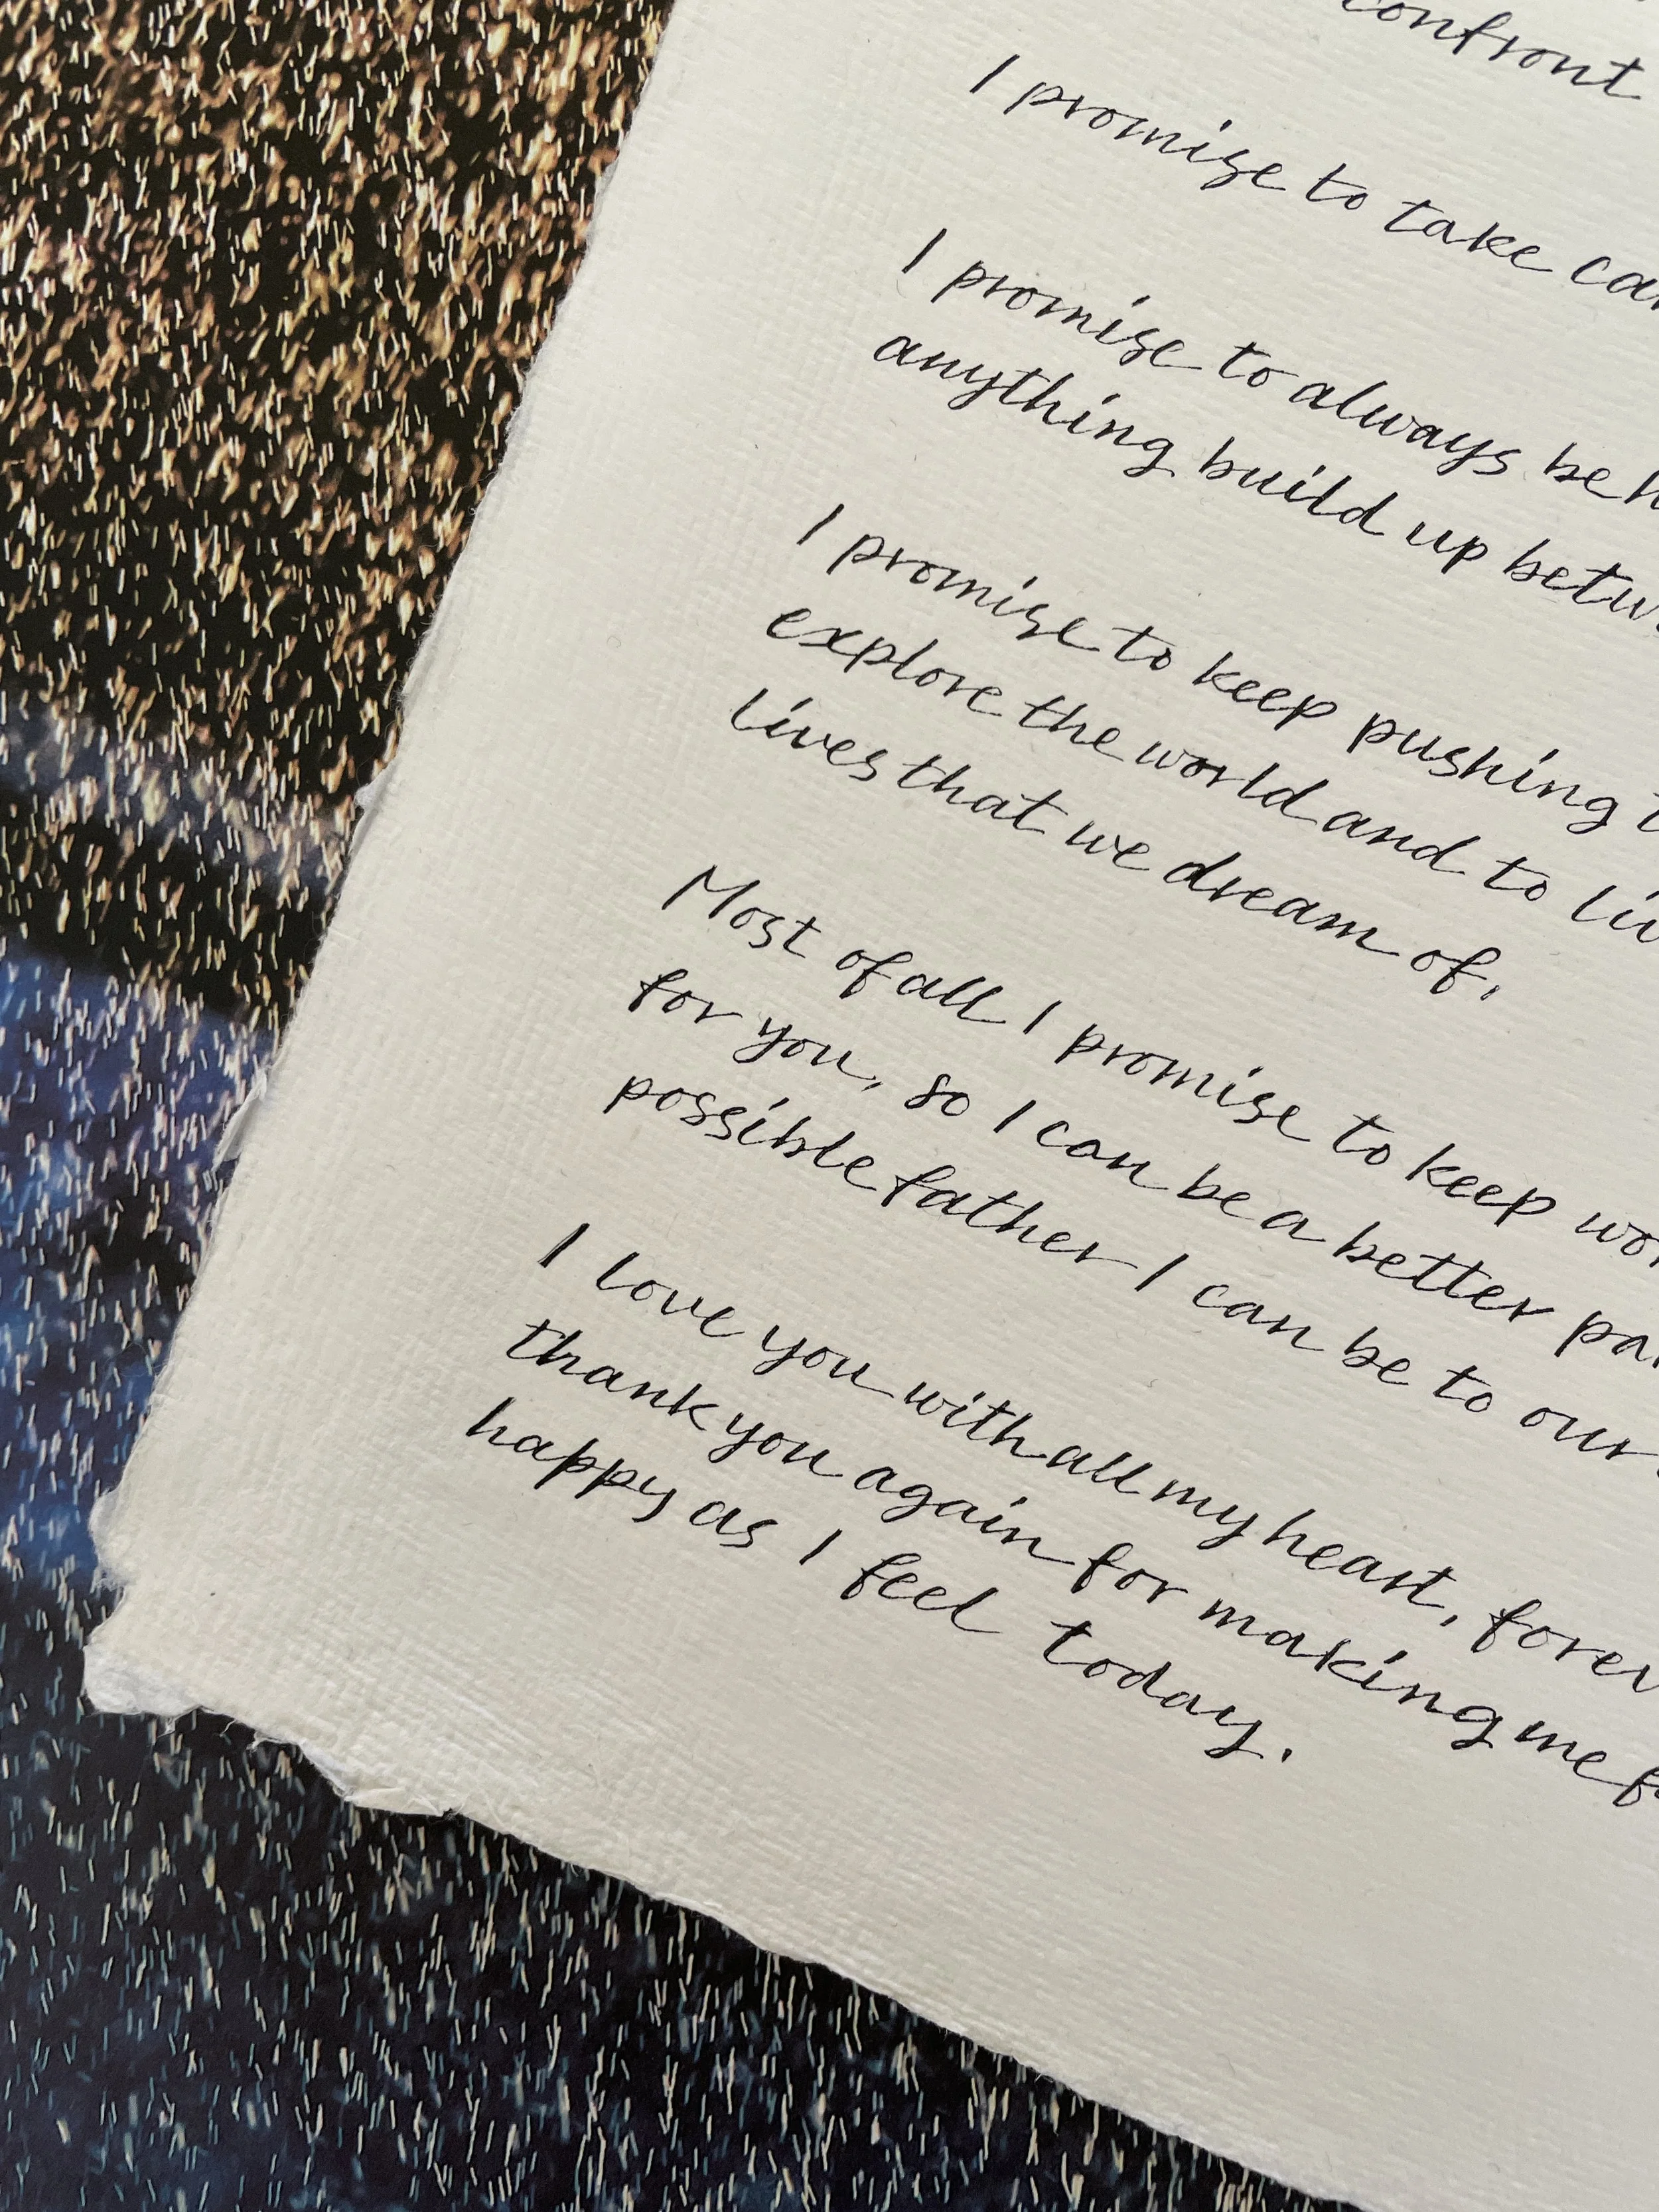 confront
I promise to take
I promise to always be
anything build up
I promise to keep pushing
explore the world and to
lives that we dream of.
Most of all I promise to keep
for you, so I can be a better
possible father I can be to our
I love you with all my heart,
thank you again for making me
happy as I feel today.